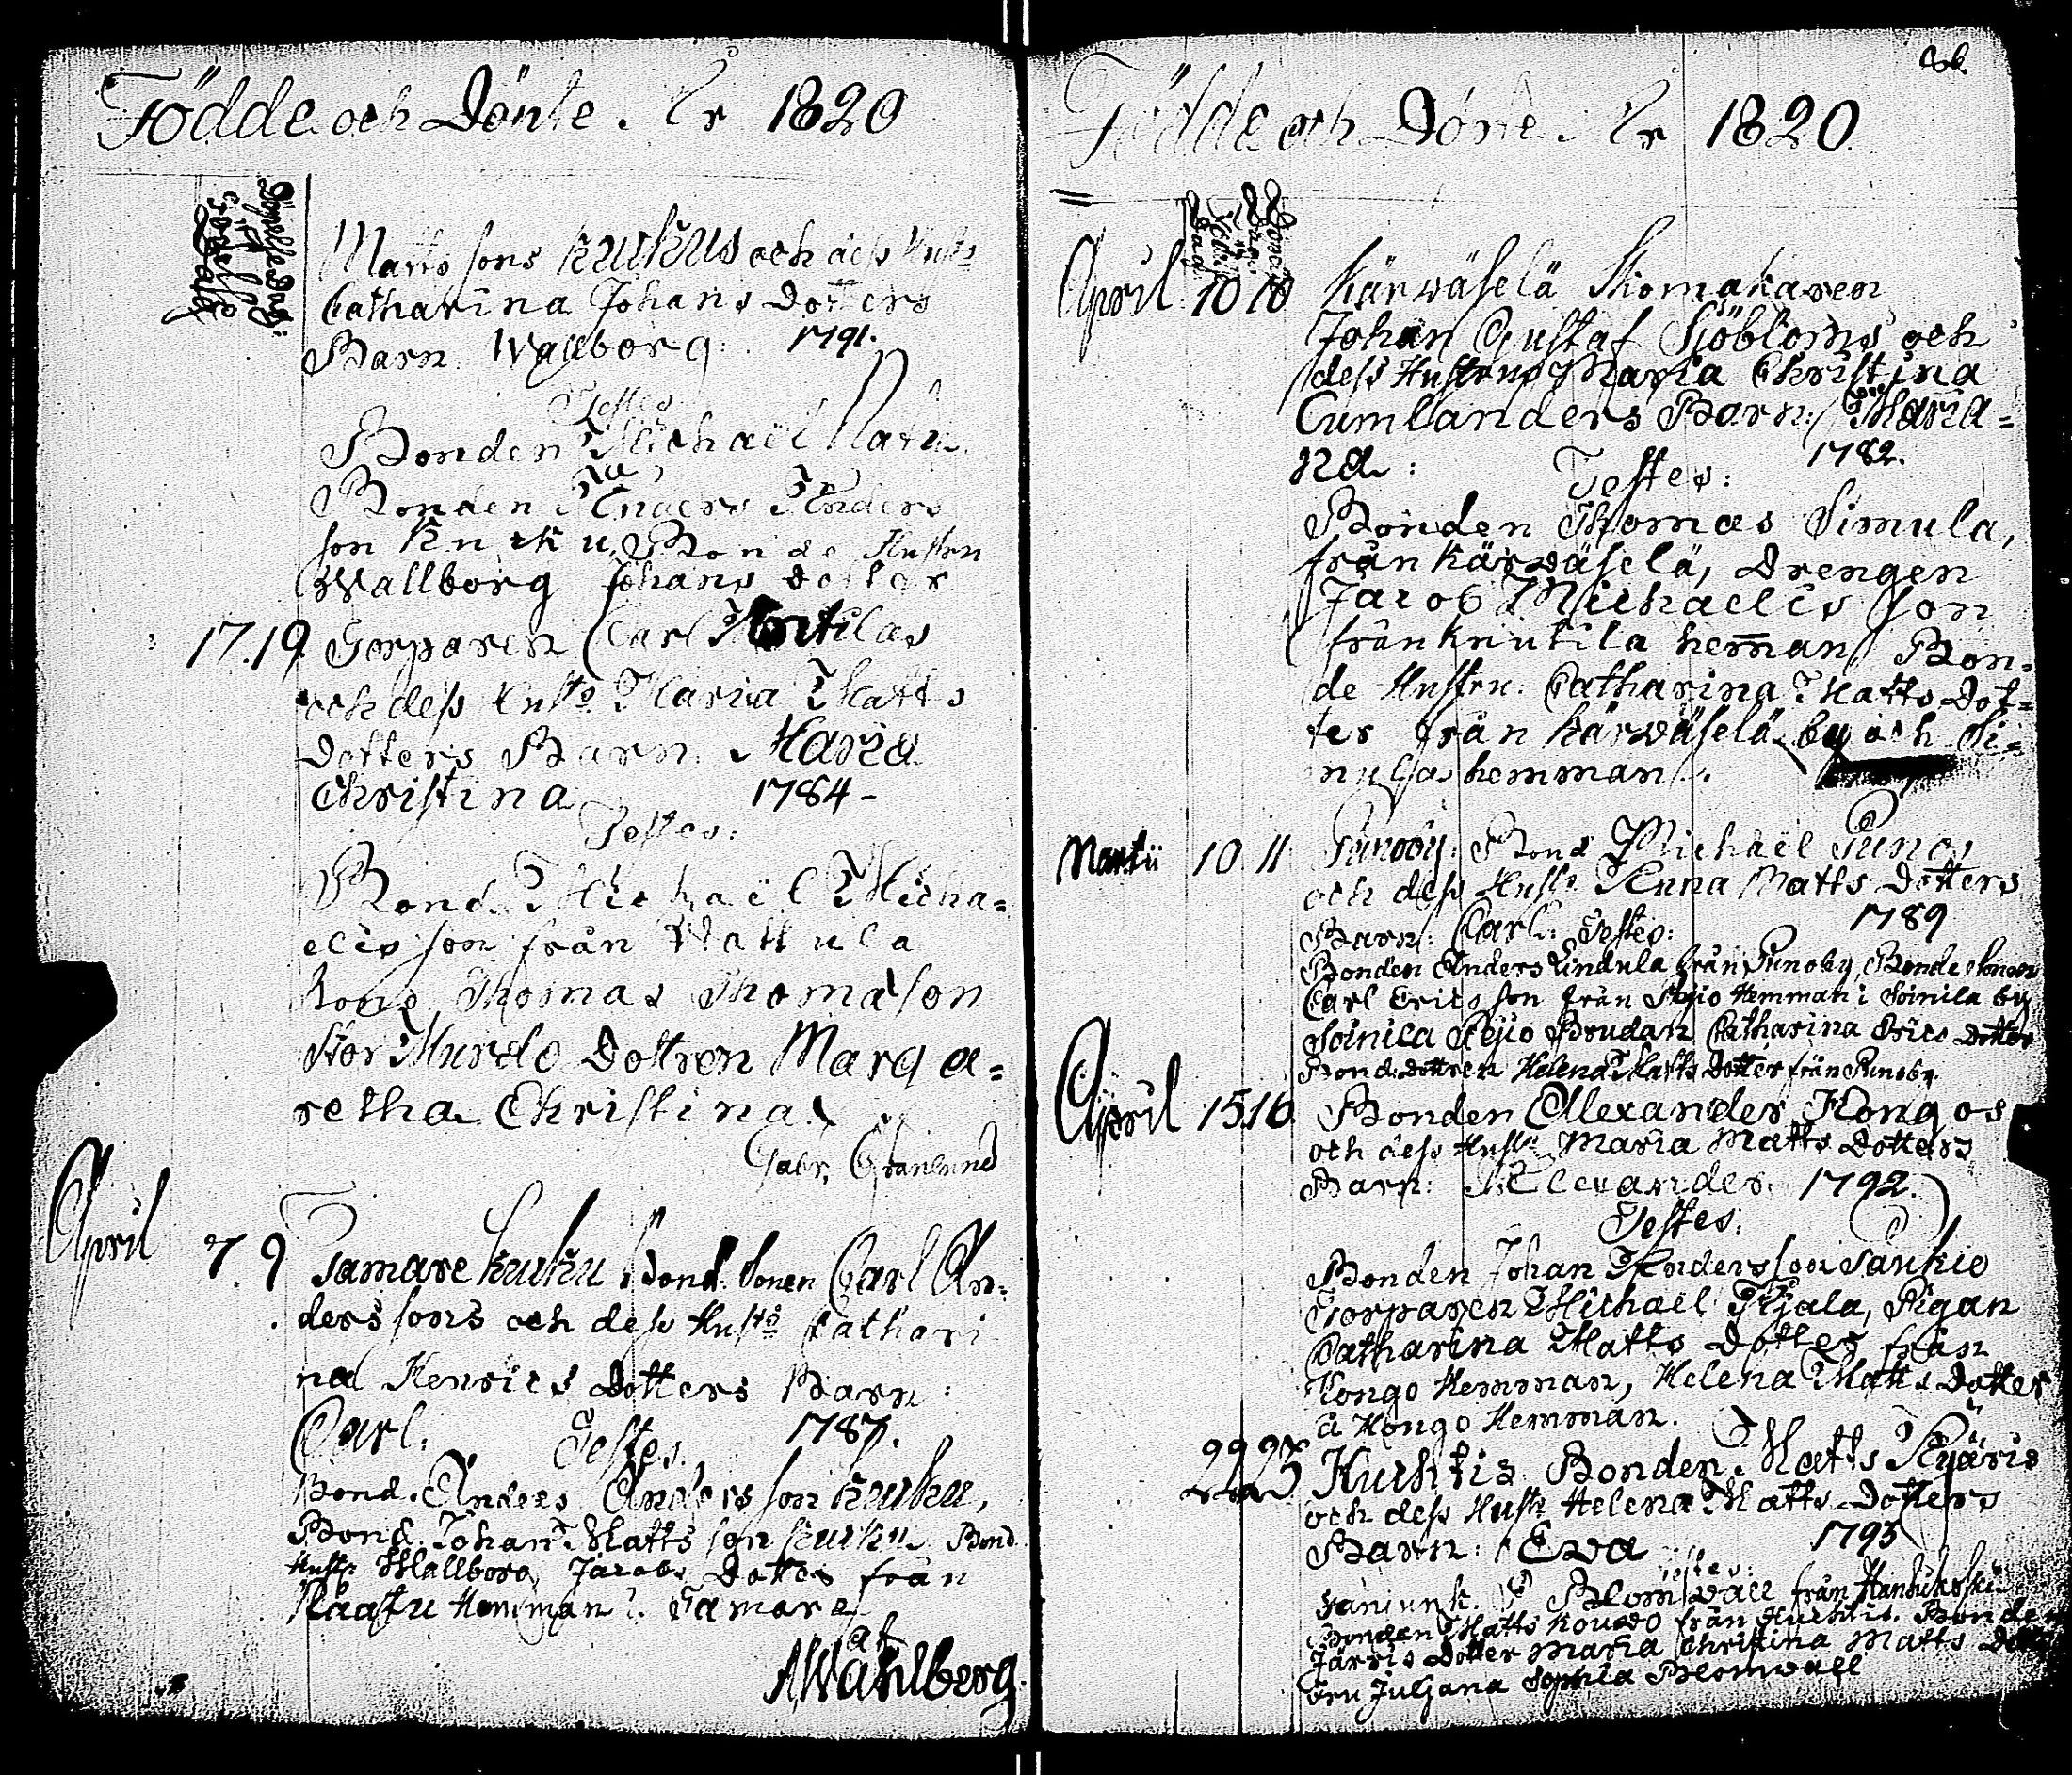 Födde och Dönte År 1820
Födelse Dag
Mattssons Kurkus och dess Hust:
Catharina Johans Dotters
Barn: Wallborg: 1791.
Testes
Bonden Michaël
Bonden Anders Anders
son Kurku, Bonde Hustru
Wallborg Johans Dotter
17. 19. Torparen Carl
och dess Hust: Maria Matts
Dotters Barn: Maria
Christina 1784 –
Testes:
Bond. Michaël Micha=
elis son från Wattula
Bond. Thomas Thomasson
Stor Murdo Dottren Marga=
retha Christina.
Gabr. Granlund
April 7. 9 Tamare Kurku Bond. Sonen Carl An=
ders sons och dess Hust: Cathari
na Henrics Dotters Barn:
Carl. Testes. 1787.
Bond. Anders Anders son Kurku,
Bond. Johan Matts son Kurku Bond.
Hustr Wallborg Jacobs Dotter från
Hemman i Tamare
af
A Wahlberg.
Födde och Dönte År 1820
April 10 10 Kärwäselä Skomakaren
Johan Gustaf Sjöbloms och
dess Hustrus Maria Christina
Cumlanders Barn: Maria=
na: 1782.
Testes:
Bonden Thomas Simula,
från Kärwäselä, Drengen
Jacob Michaelis son
från Knutila heman, Bon=
de Hustru: Catharina Matts Dot=
ter från Kärwäselä by och Si=
mula hemman.
Martii 10. 11. Punoby: Bond Michaël Punos
och dess Hustr. Anna Matts Dotters
1789
Barn: Carl: Testes:
Bonden Anders Lindula från Punoby, Bonde Sonen
Carl Erics son från Äijö Hemman i Soinila by
Soinila Äijö Brudan Catharina Erics Dotter
Bond: Dottren Helena Matts Dotter från Punoby.
April 15 16 Bonden Alexander Hongos
och dess Hustr Maria Matts Dotters
Barn: Alexander. 1792.
Testes:
Bonden Johan Andersson Saukio
Torparen Michaël Ajala, Pigan
Catharina Matts Dotter från
Hongo Hemman, Helena Matts Dotter
å Hongo Hemman.
22 23 Huhtis Bonden Matts
och dess Hustr Helena Matts Dotters
Barn: Ewa 1793
Testes:
Blomwall från
Bonden Matts Kouwo från Huhtis. Bonden
Järris Dotter Maria Christina Matts
Juljana Sophia Blomwall